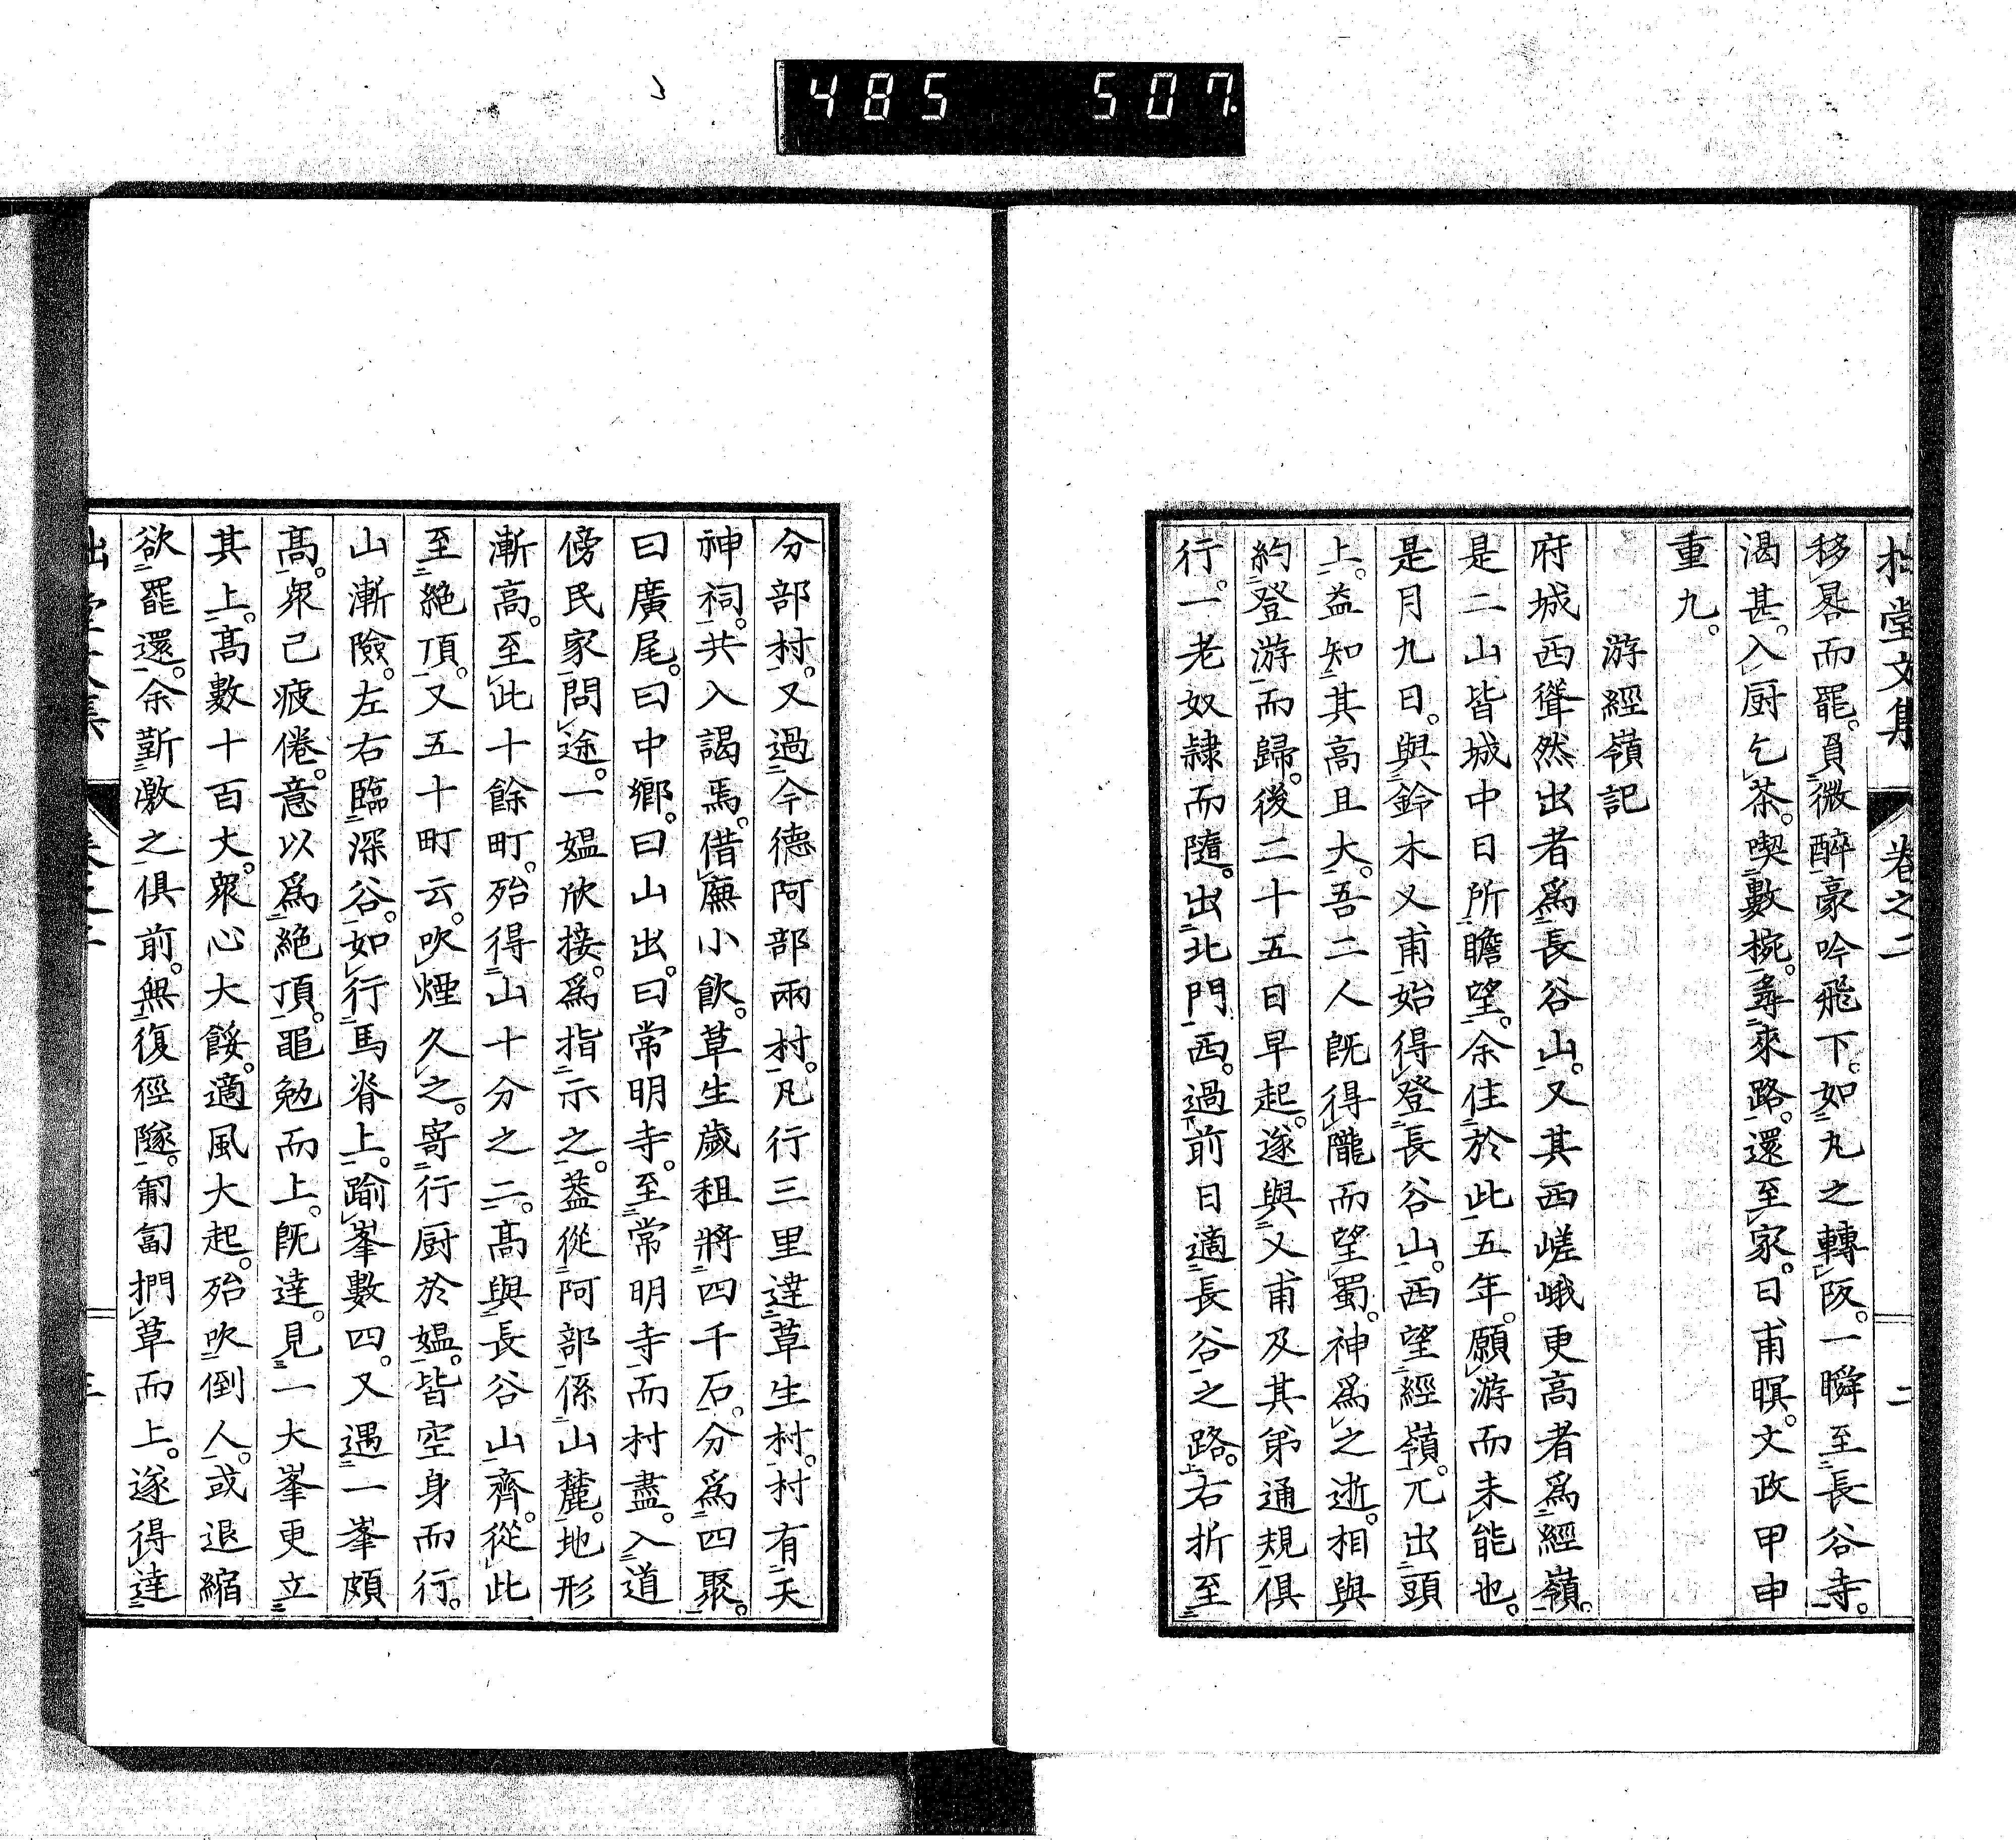 485 507
拙堂文集 卷之二 二
移晷而罷。負微醉豪吟飛下。如丸之轉阪。一瞬至長谷寺。
渴甚。入厨乞茶。喫數椀。尋來路。還至家。日甫暝。文政甲申
重九。
游經嶺記
府城西聳然出者爲長谷山。又其西嵯峨更高者爲經嶺。
是二山皆城中日所瞻望。余住於此五年。願游而未能也。
是月九日。與鈴木乂甫始得登長谷山。西望經嶺。兀出頭
上。益知其高且大。吾二人既得隴而望蜀。神爲之逝。相與
約登游而歸。後二十五日早起。遂與乂甫及其弟通規俱
行。一老奴隷而隨。出北門西。過前日適長谷之路。右折至
分部村。又過今德阿部兩村。凡行三里達草生村。村有天
神祠。共入謁焉。借廡小飲。草生歲租將四千石。分爲四聚。
曰廣尾。曰中鄉。曰山出。曰常明寺。至常明寺而村盡。入道
傍民家問途。一媼欣接。爲指示之。葢從阿部係山麓。地形
漸高。至此十餘町。殆得山十分之二。高與長谷山齊。從此
至絕頂。又五十町云。吹煙久之。寄行厨於媼。皆空身而行。
山漸險。左右臨深谷。如行馬脊上。踰峯數四。又遇一峯頗
高。衆已疲倦。意以爲絕頂。黽勉而上。既達。見一大峯更立
其上。高數十百丈。衆心大餒。適風大起。殆吹倒人。或退縮
欲罷還。余斳激之俱前。無復徑隧。匍匐捫草而上。遂得達